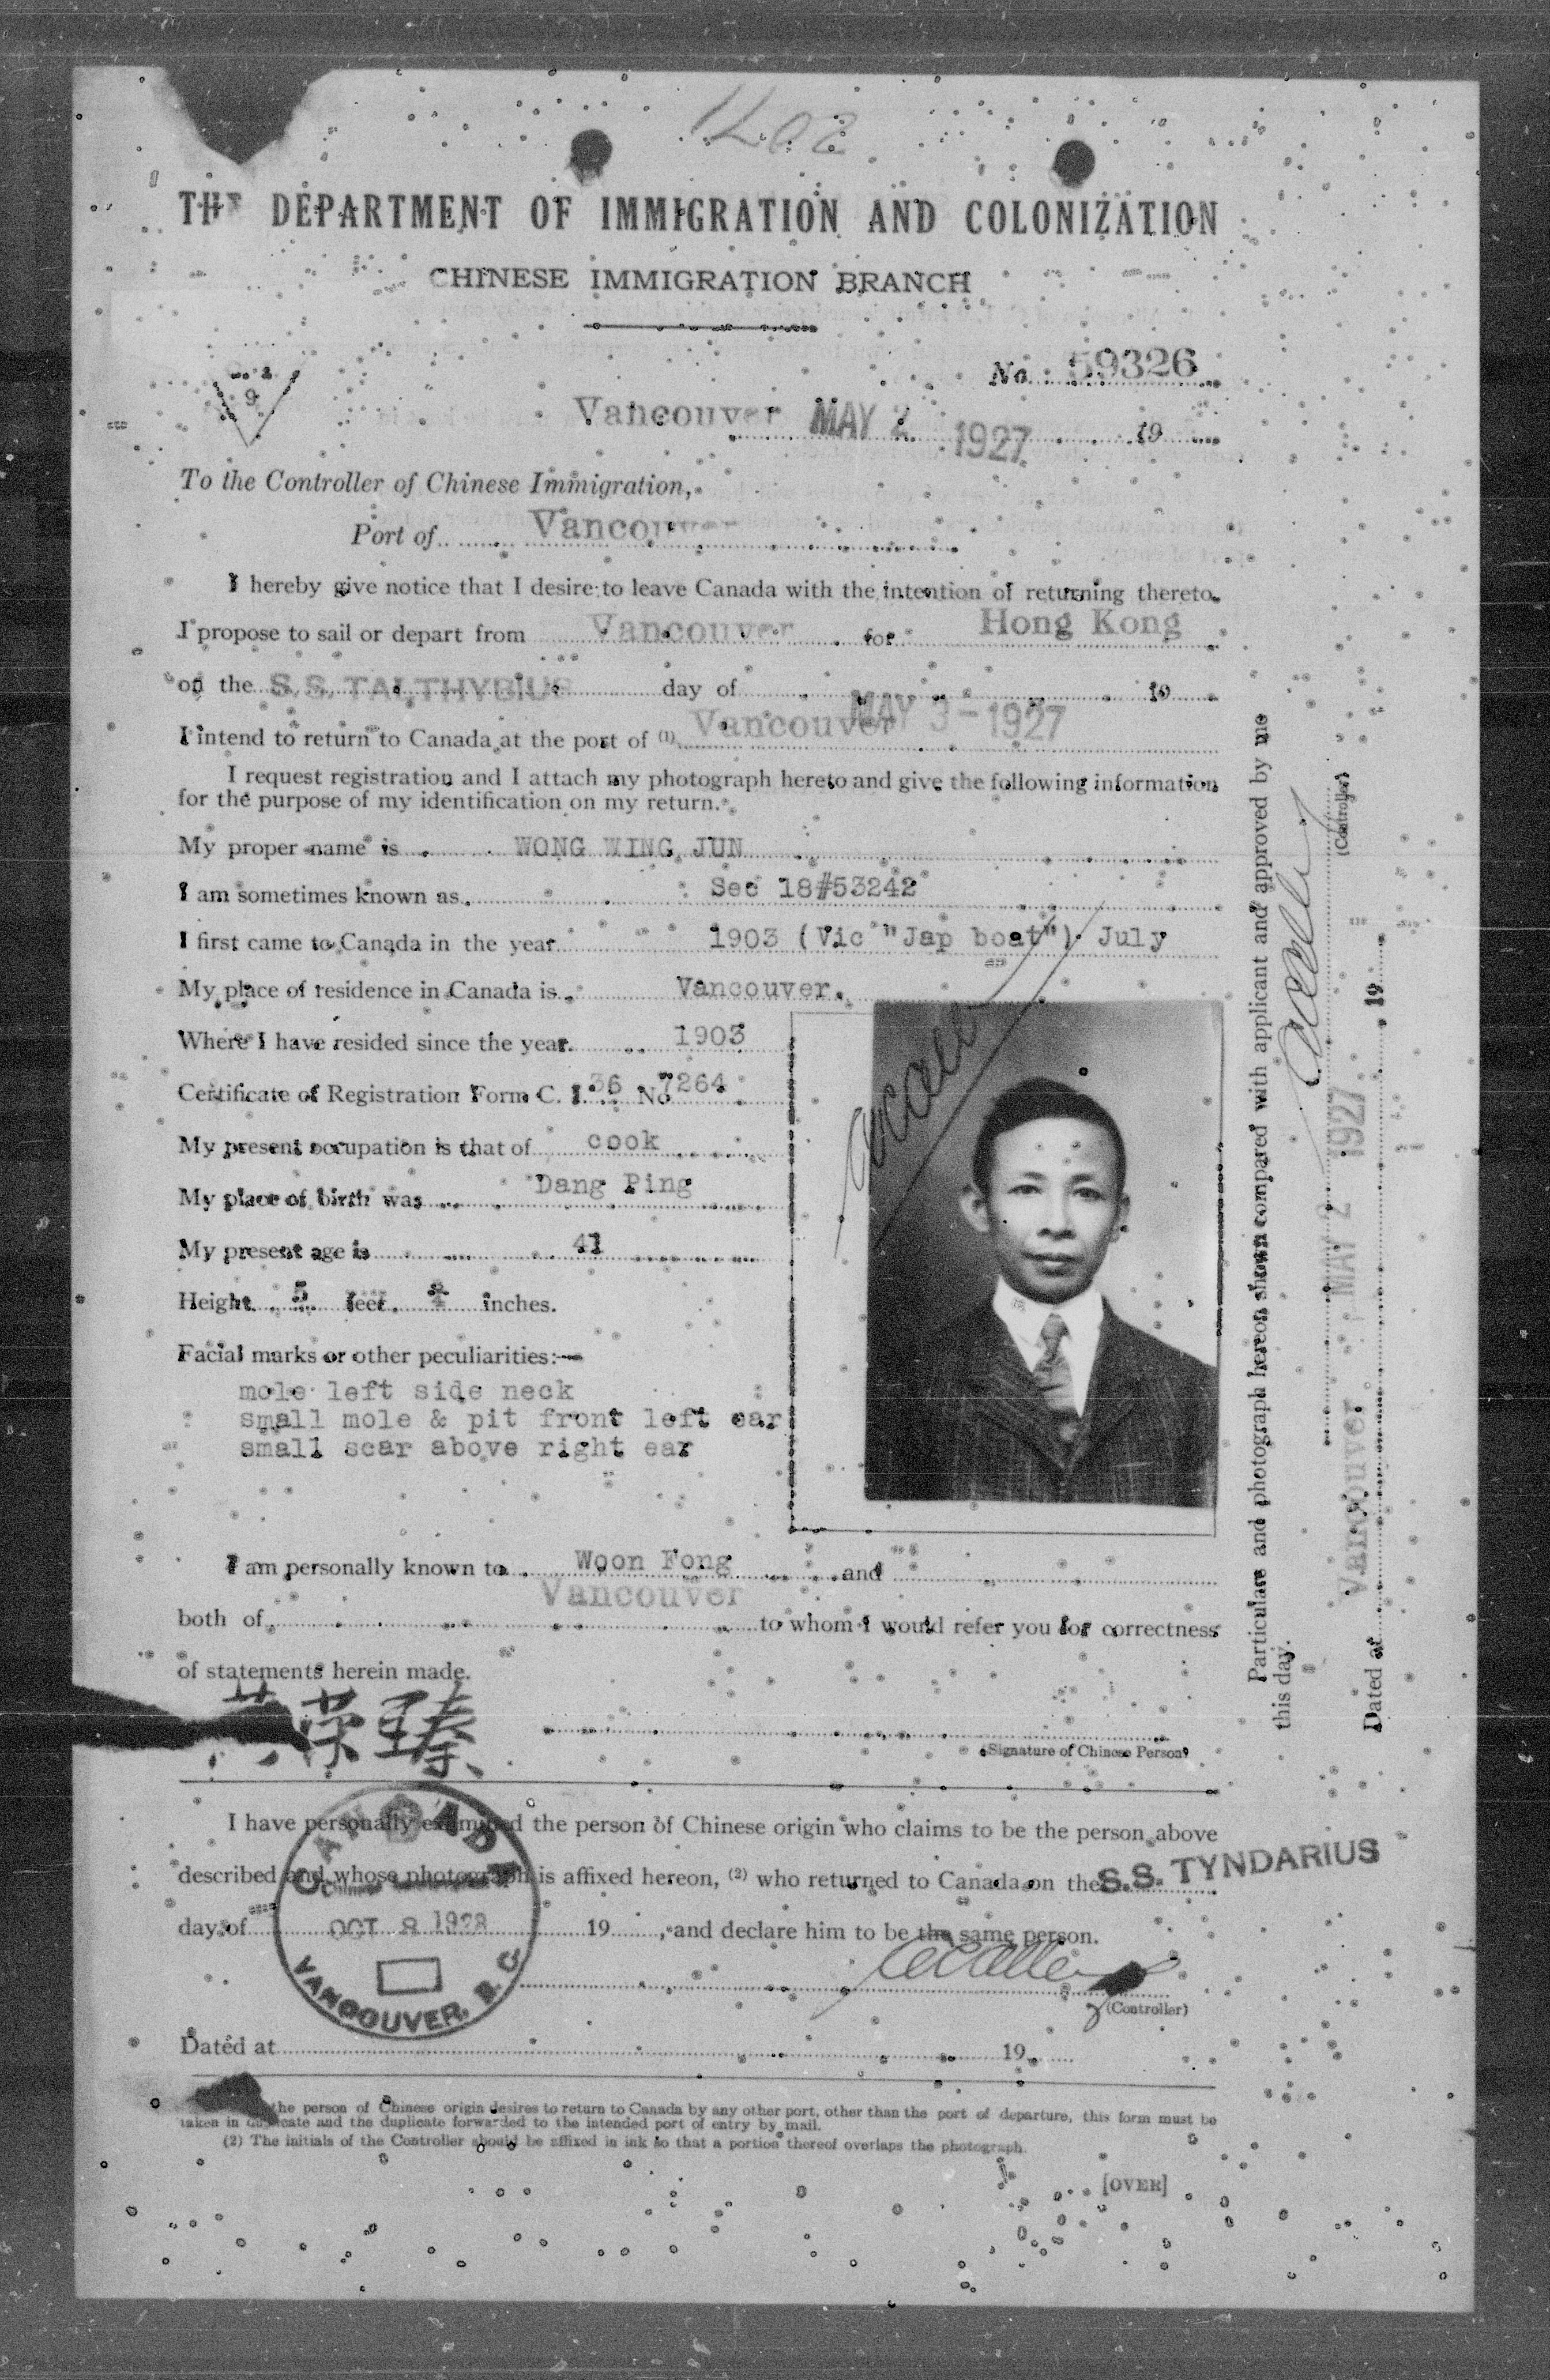 1202
THE DEPARTMENT OF IMMIGRATION AND COLONIZATION
CHINESE IMMIGRATION BRANCH
No. 59326
9
Vancouver MAY 2 1927 19
To the Controller of Chinese Immigration,
Port of Vancouver
I hereby give notice that I desire to leave Canada with the intention of returning thereto.
I propose to sail or depart from Vancouver for Hong Kong
on the S.S. TALTHYBIUS day of MAY 3 - 1927 19
I intend to return to Canada at the port of (1) Vancouver
I request registration and I attach my photograph hereto and give the following information
for the purpose of my identification on my return.
My proper name is WONG WING JUN
I am sometimes known as Sec 18#53242
I first came to Canada in the year 1903 (Vic "Jap boat") July
My place of residence in Canada is Vancouver.
Where I have resided since the year 1903
Certificate of Registration Form C. I. 36 No 7264
My present occupation is that of cook
My place of birth was Dang Ping
My present age is 41
Height 5 feet 4 inches.
Facial marks or other peculiarities:—
mole left side neck
small mole & pit front left ear
small scar above right ear
I am personally known to Woon Fong and
both of Vancouver to whom I would refer you for correctness
of statements herein made.
黄荣臻
(Signature of Chinese Person)
I have personally examined the person of Chinese origin who claims to be the person above
described and whose photograph is affixed hereon, (2) who returned to Canada on the S.S. TYNDARIUS
day of OCT 8 1928 19 , and declare him to be the same person.
CANADA
VANCOUVER, B.C.
(Controller)
Dated at 19
the person of Chinese origin desires to return to Canada by any other port, other than the port of departure, this form must be
taken in duplicate and the duplicate forwarded to the intended port of entry by mail.
(2) The initials of the Controller should be affixed in ink so that a portion thereof overlaps the photograph.
[OVER]
Particulars and photograph hereon shown compared with applicant and approved by me
this day.
(Controller)
Dated at Vancouver MAY 2 1927 19